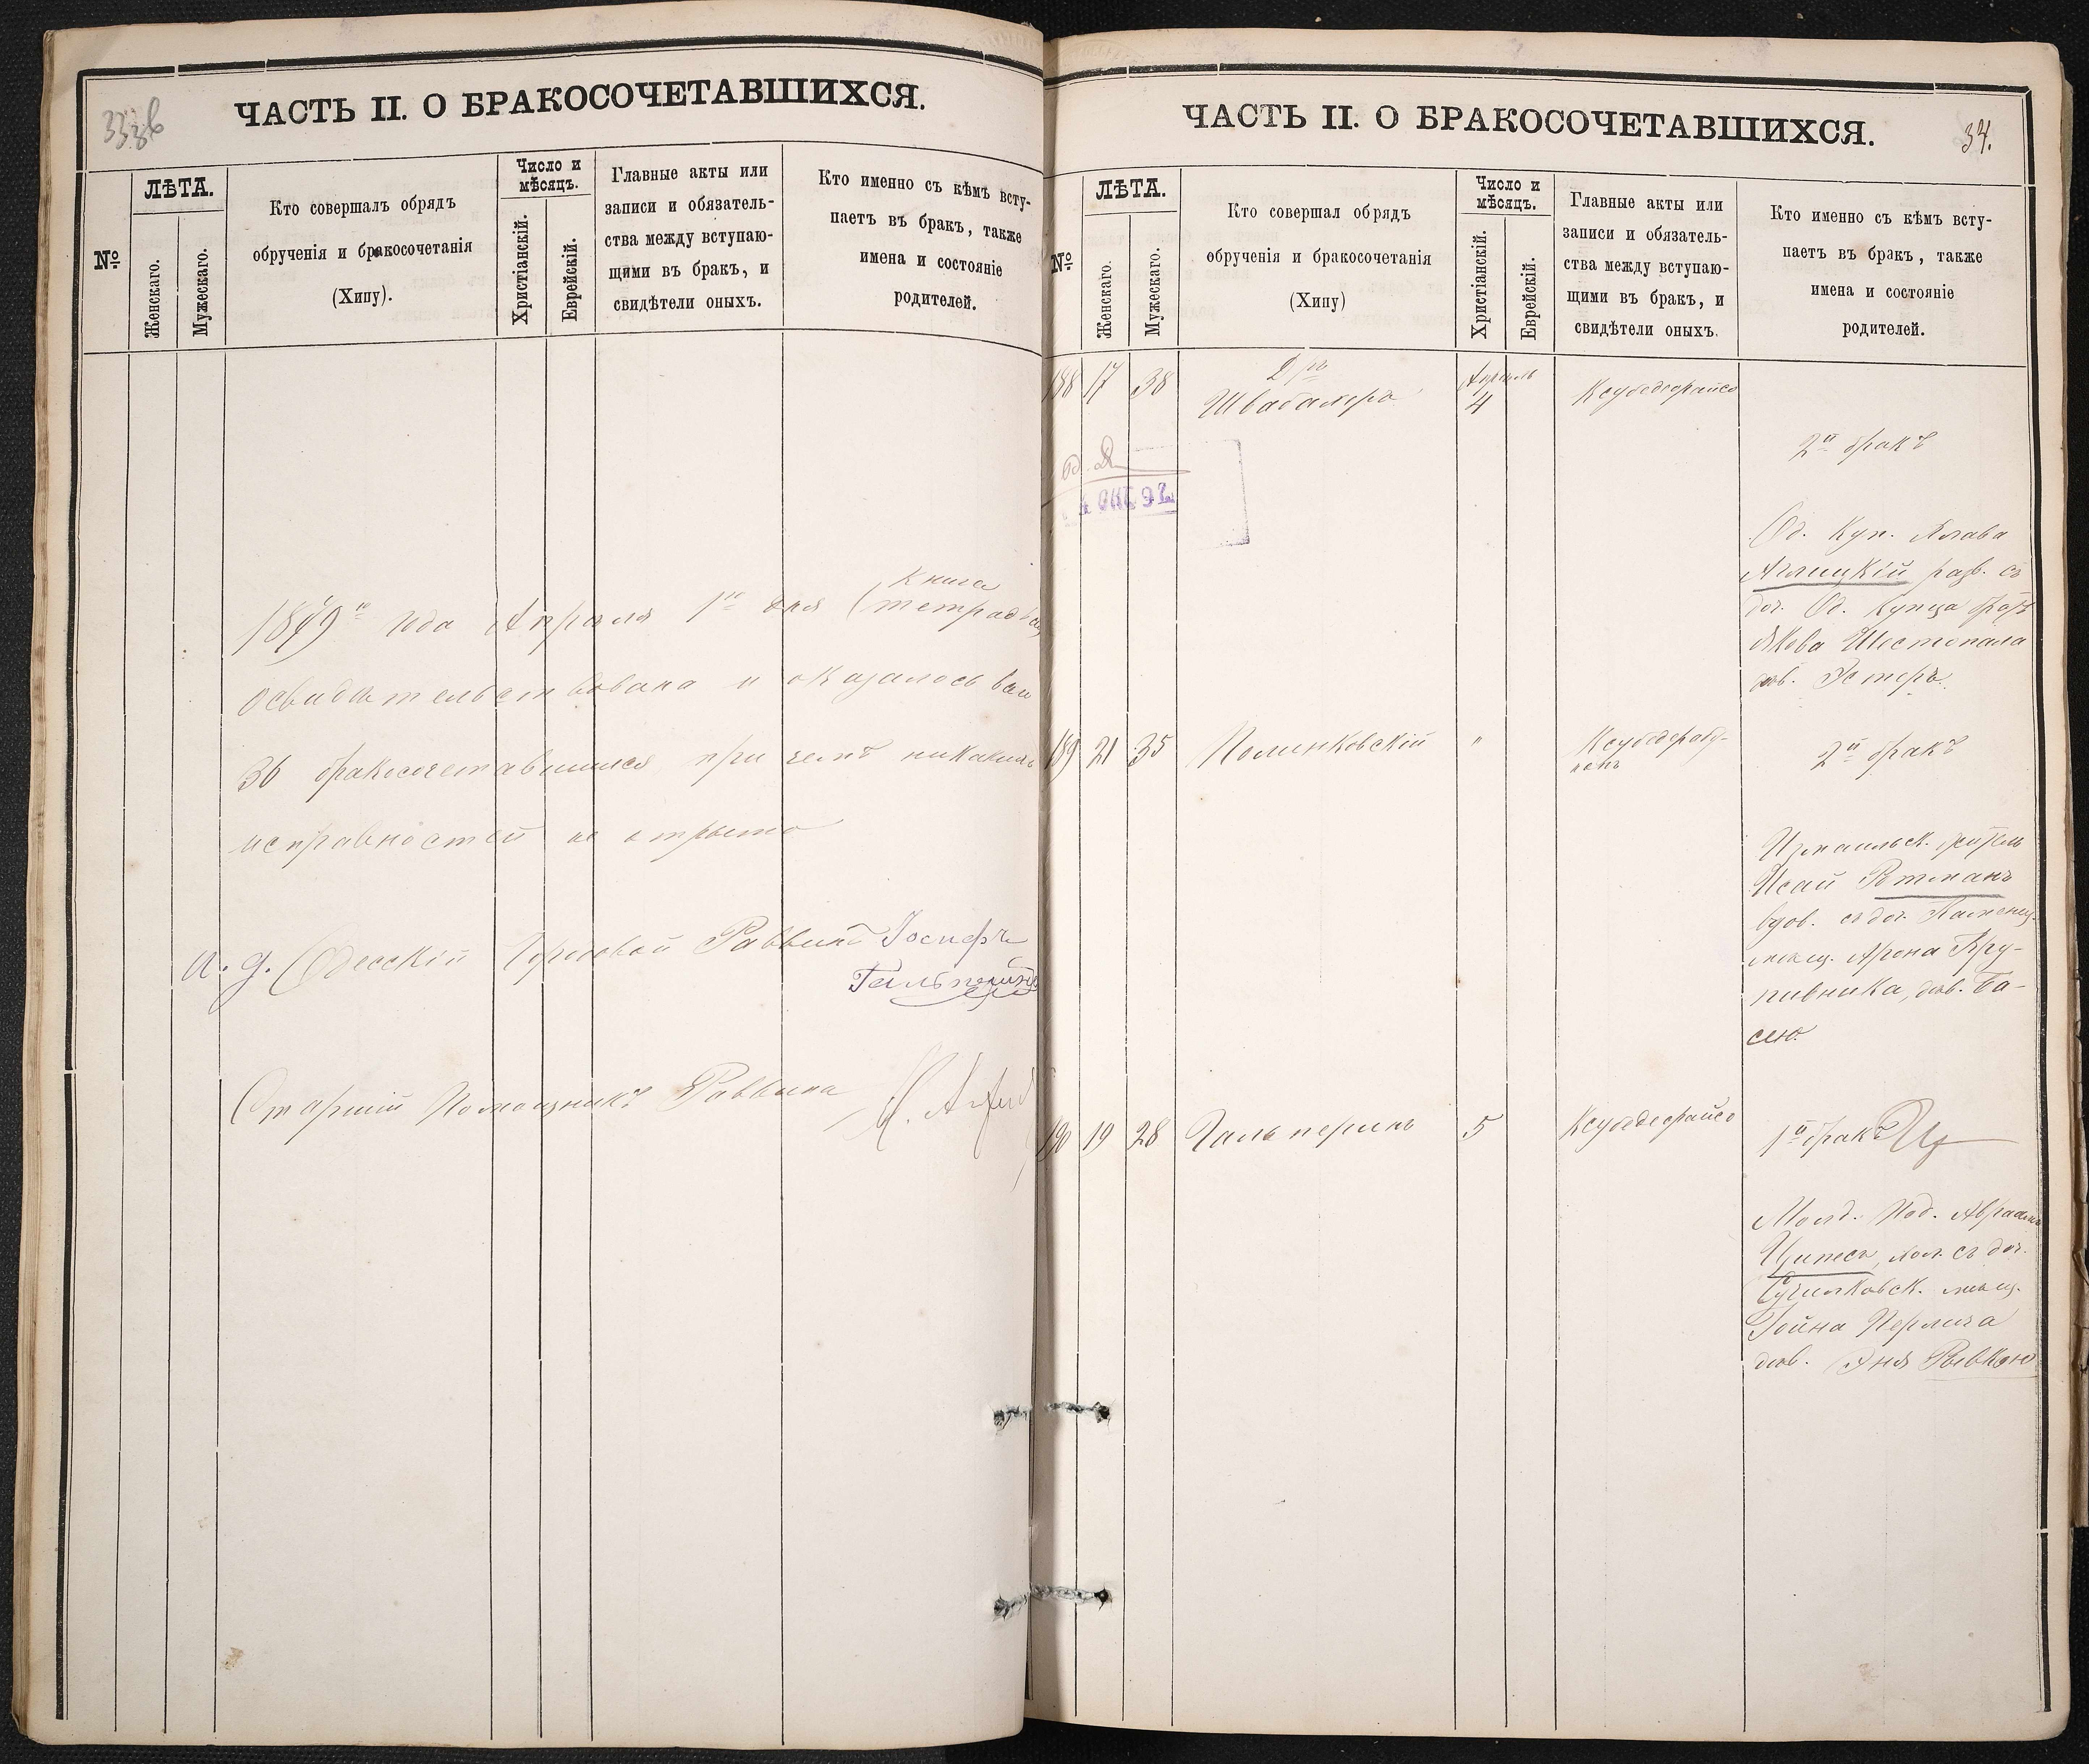 ЧАСТЬ II. О БРАКОСОЧЕТАВШИХСЯ.
№
ЛѢТА.
Женскаго.
Мужескаго.
Кто совершалъ обрядъ
обрученія и бракосочетанія
(Хипу).
Число и
мѣсяцъ.
Христіанскій.
Еврейскій.
Главные акты или
записи и обязатель-
ства между вступаю-
щими въ бракъ, и
свидѣтели оныхъ.
Кто именно съ кѣмъ всту-
паетъ въ бракъ, также
имена и состояніе
родителей.
книга
1879го года Апрѣля 1го дня (тетрадь
освидѣтельствована и оказалось
36 бракосочетавшихся при чемъ никакихъ
исправностей не
и. д. Одесскій Городовой Раввинъ Іосифъ
Гальперинъ
Старшій Помощникъ Раввина
ЧАСТЬ II. О БРАКОСОЧЕТАВШИХСЯ.
34.
№
ЛѢТА.
Женскаго.
Мужескаго.
Кто совершал обрядъ
обрученія и бракосочетанія
(Хипу)
Число и
мѣсяцъ.
Христіанскій.
Еврейскій.
Главные акты или
записи и обязатель-
ства между вступаю-
щими въ бракъ, и
свидѣтели оныхъ.
Кто именно съ кѣмъ всту-
паетъ въ бракъ, также
имена и состояніе
родителей.
188 17 38 Д-ръ
Швабахеръ
Апрѣль
4
Ксубедеграйсо
2й бракъ
Од. Куп.
разв. съ
доч. Од. Купца
Якова Шестопала
дѣв. Эстеръ.
4 ОКТ 92
189 21 35 Полинковскій "
2й бракъ
Измаильск. житель
Исай Ротманъ
вдов. съ доч.
мѣщ. Арона Кру-
пивника, дѣв. Ба-
сею.
190 19 28 Гальперинъ 5 Ксубедеграйсо
1й бракъ
Молд. Под. Авраамъ
Ципесъ, хол. съ доч.
мѣщ.
дѣв. Рывкою